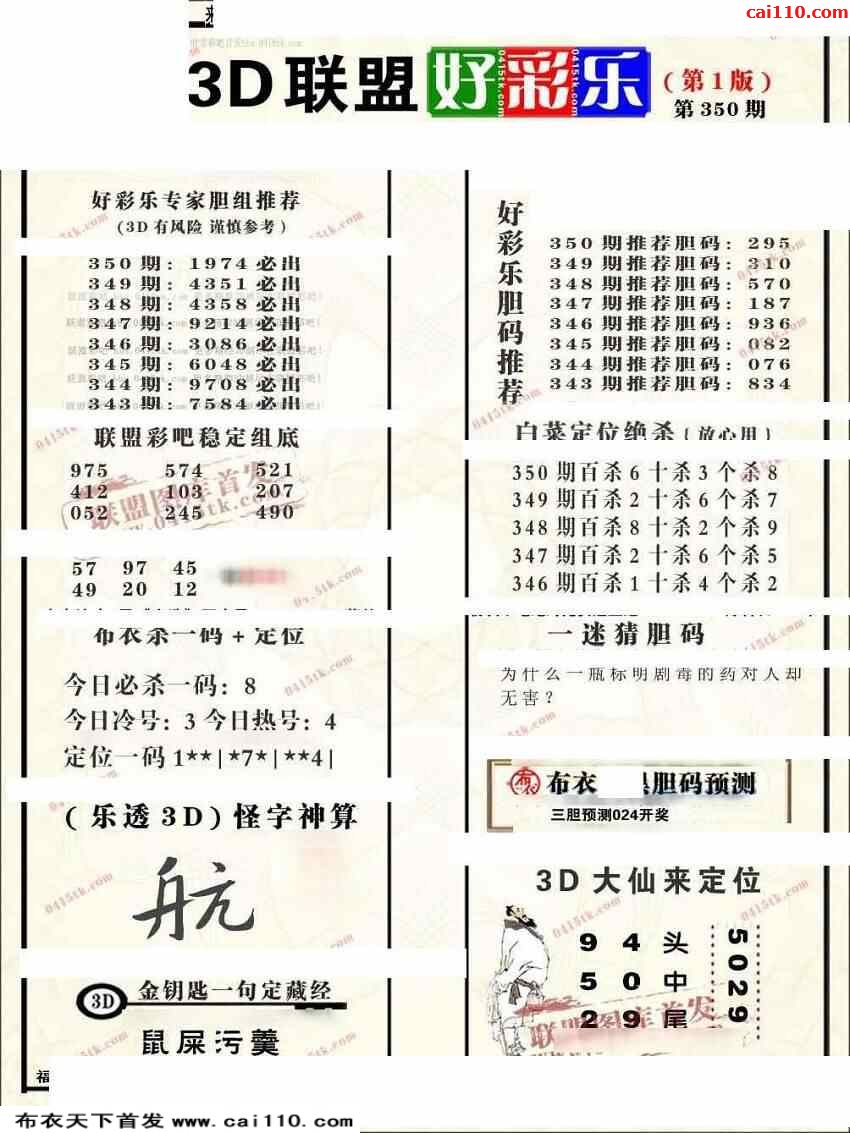 cai110.com
3D联盟好彩乐
(第1版)
第350期
好彩乐专家胆组推荐
(3D有风险 谨慎参考)
350期: 1974必出
349期: 4351必出
348期: 4358必出
347期: 9214必出
346期: 3086必出
345期: 6048必出
344期: 9708必出
343期: 7584必出
联盟彩吧稳定组底
975 574 521
412 103 207
052 245 490
57 97 45
49 20 12
布衣杀一码+定位
今日必杀一码: 8
今日冷号: 3 今日热号: 4
定位一码1**|*7*|**4|
(乐透3D)怪字神算
航
3D 金钥匙一句定藏经
鼠屎污羹
好彩乐胆码推荐
350期推荐胆码: 295
349期推荐胆码: 310
348期推荐胆码: 570
347期推荐胆码: 187
346期推荐胆码: 936
345期推荐胆码: 082
344期推荐胆码: 076
343期推荐胆码: 834
白菜定位绝杀(放心用)
350期百杀6十杀3个杀8
349期百杀2十杀6个杀7
348期百杀8十杀2个杀9
347期百杀2十杀6个杀5
346期百杀1十杀4个杀2
一迷猜胆码
为什么一瓶标明剧毒的药对人却
无害?
布衣 胆码预测
三胆预测024开奖
3D大仙来定位
9 4 头
5 0 中
2 9 尾
5029
联盟图库首发
福
布衣天下首发 www.cai110.com